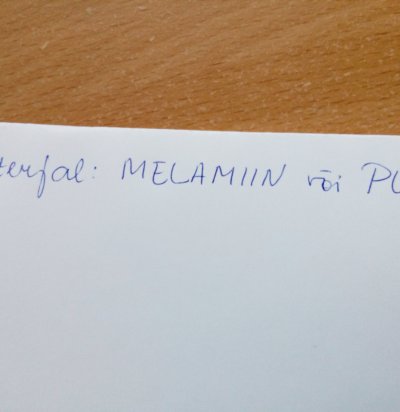 terjal: MELAMIIN või PL